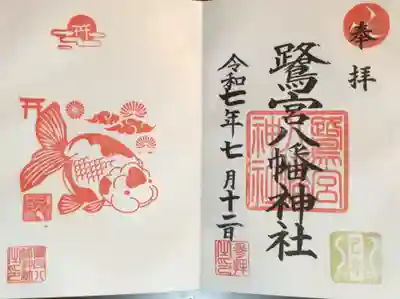 奉拝
鷺宮八幡神社
令和七年七月十二日
鷺宮
八幡
神社